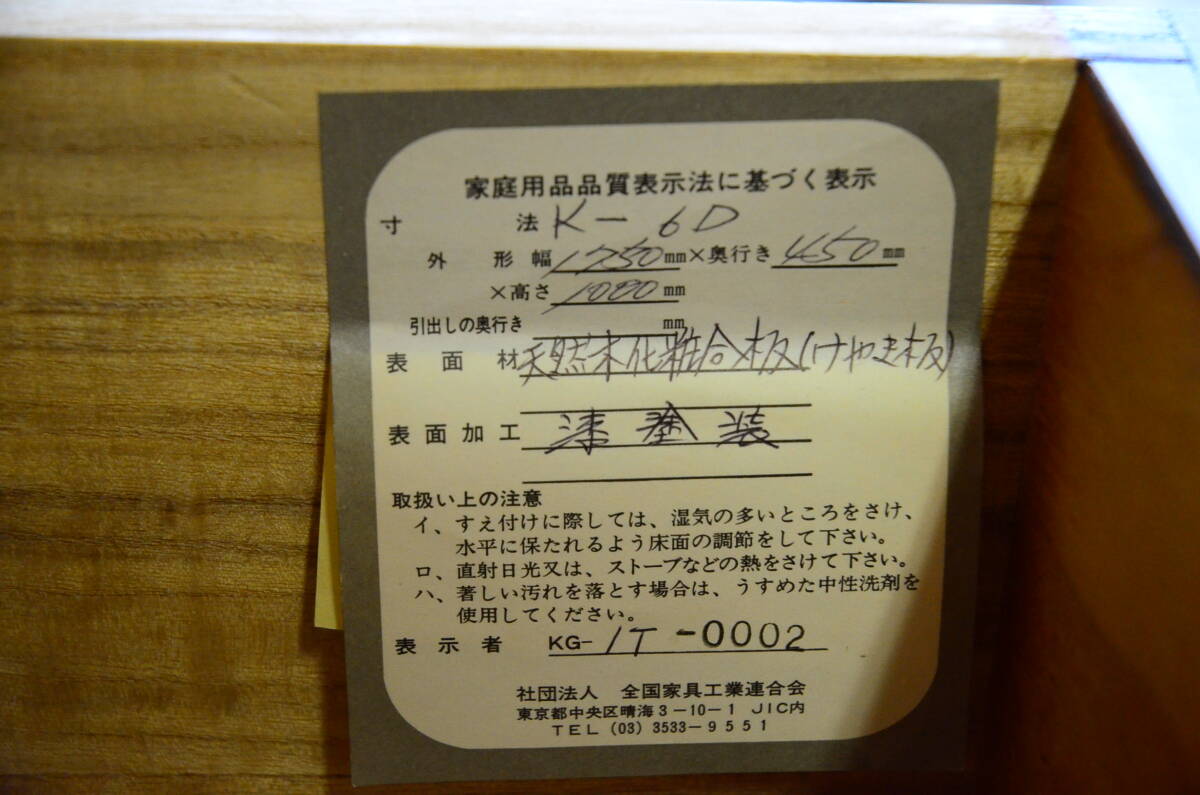 家庭用品品質表示法に基づく表示
寸 法 K-6D
外 形 幅 1250mm×奥行き 450mm
×高さ 1000mm
引出しの奥行き mm
表 面 材 天然木化粧合板(けやき板)
表面加工 漆塗装
取扱い上の注意
イ、すえ付けに際しては、湿気の多いところをさけ、
水平に保たれるよう床面の調節をして下さい。
ロ、直射日光又は、ストーブなどの熱をさけて下さい。
ハ、著しい汚れを落とす場合は、うすめた中性洗剤を
使用してください。
表 示 者 KG-IT-0002
社団法人 全国家具工業連合会
東京都中央区晴海3-10-1 JIC内
TEL (03) 3533-9551